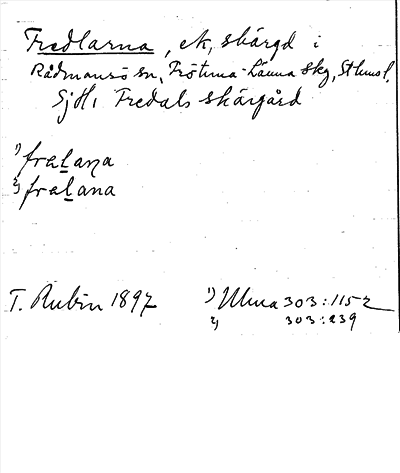 Fredlarna, ek, skärgd i
Rådmansö sn, Frötuna-Länna skg, Sthmsl.
Sjöl. Fredals skärgård
1) fralana
2) fralana
T. Rubin 1897
1) Ulma 303:1152
2) 303:239